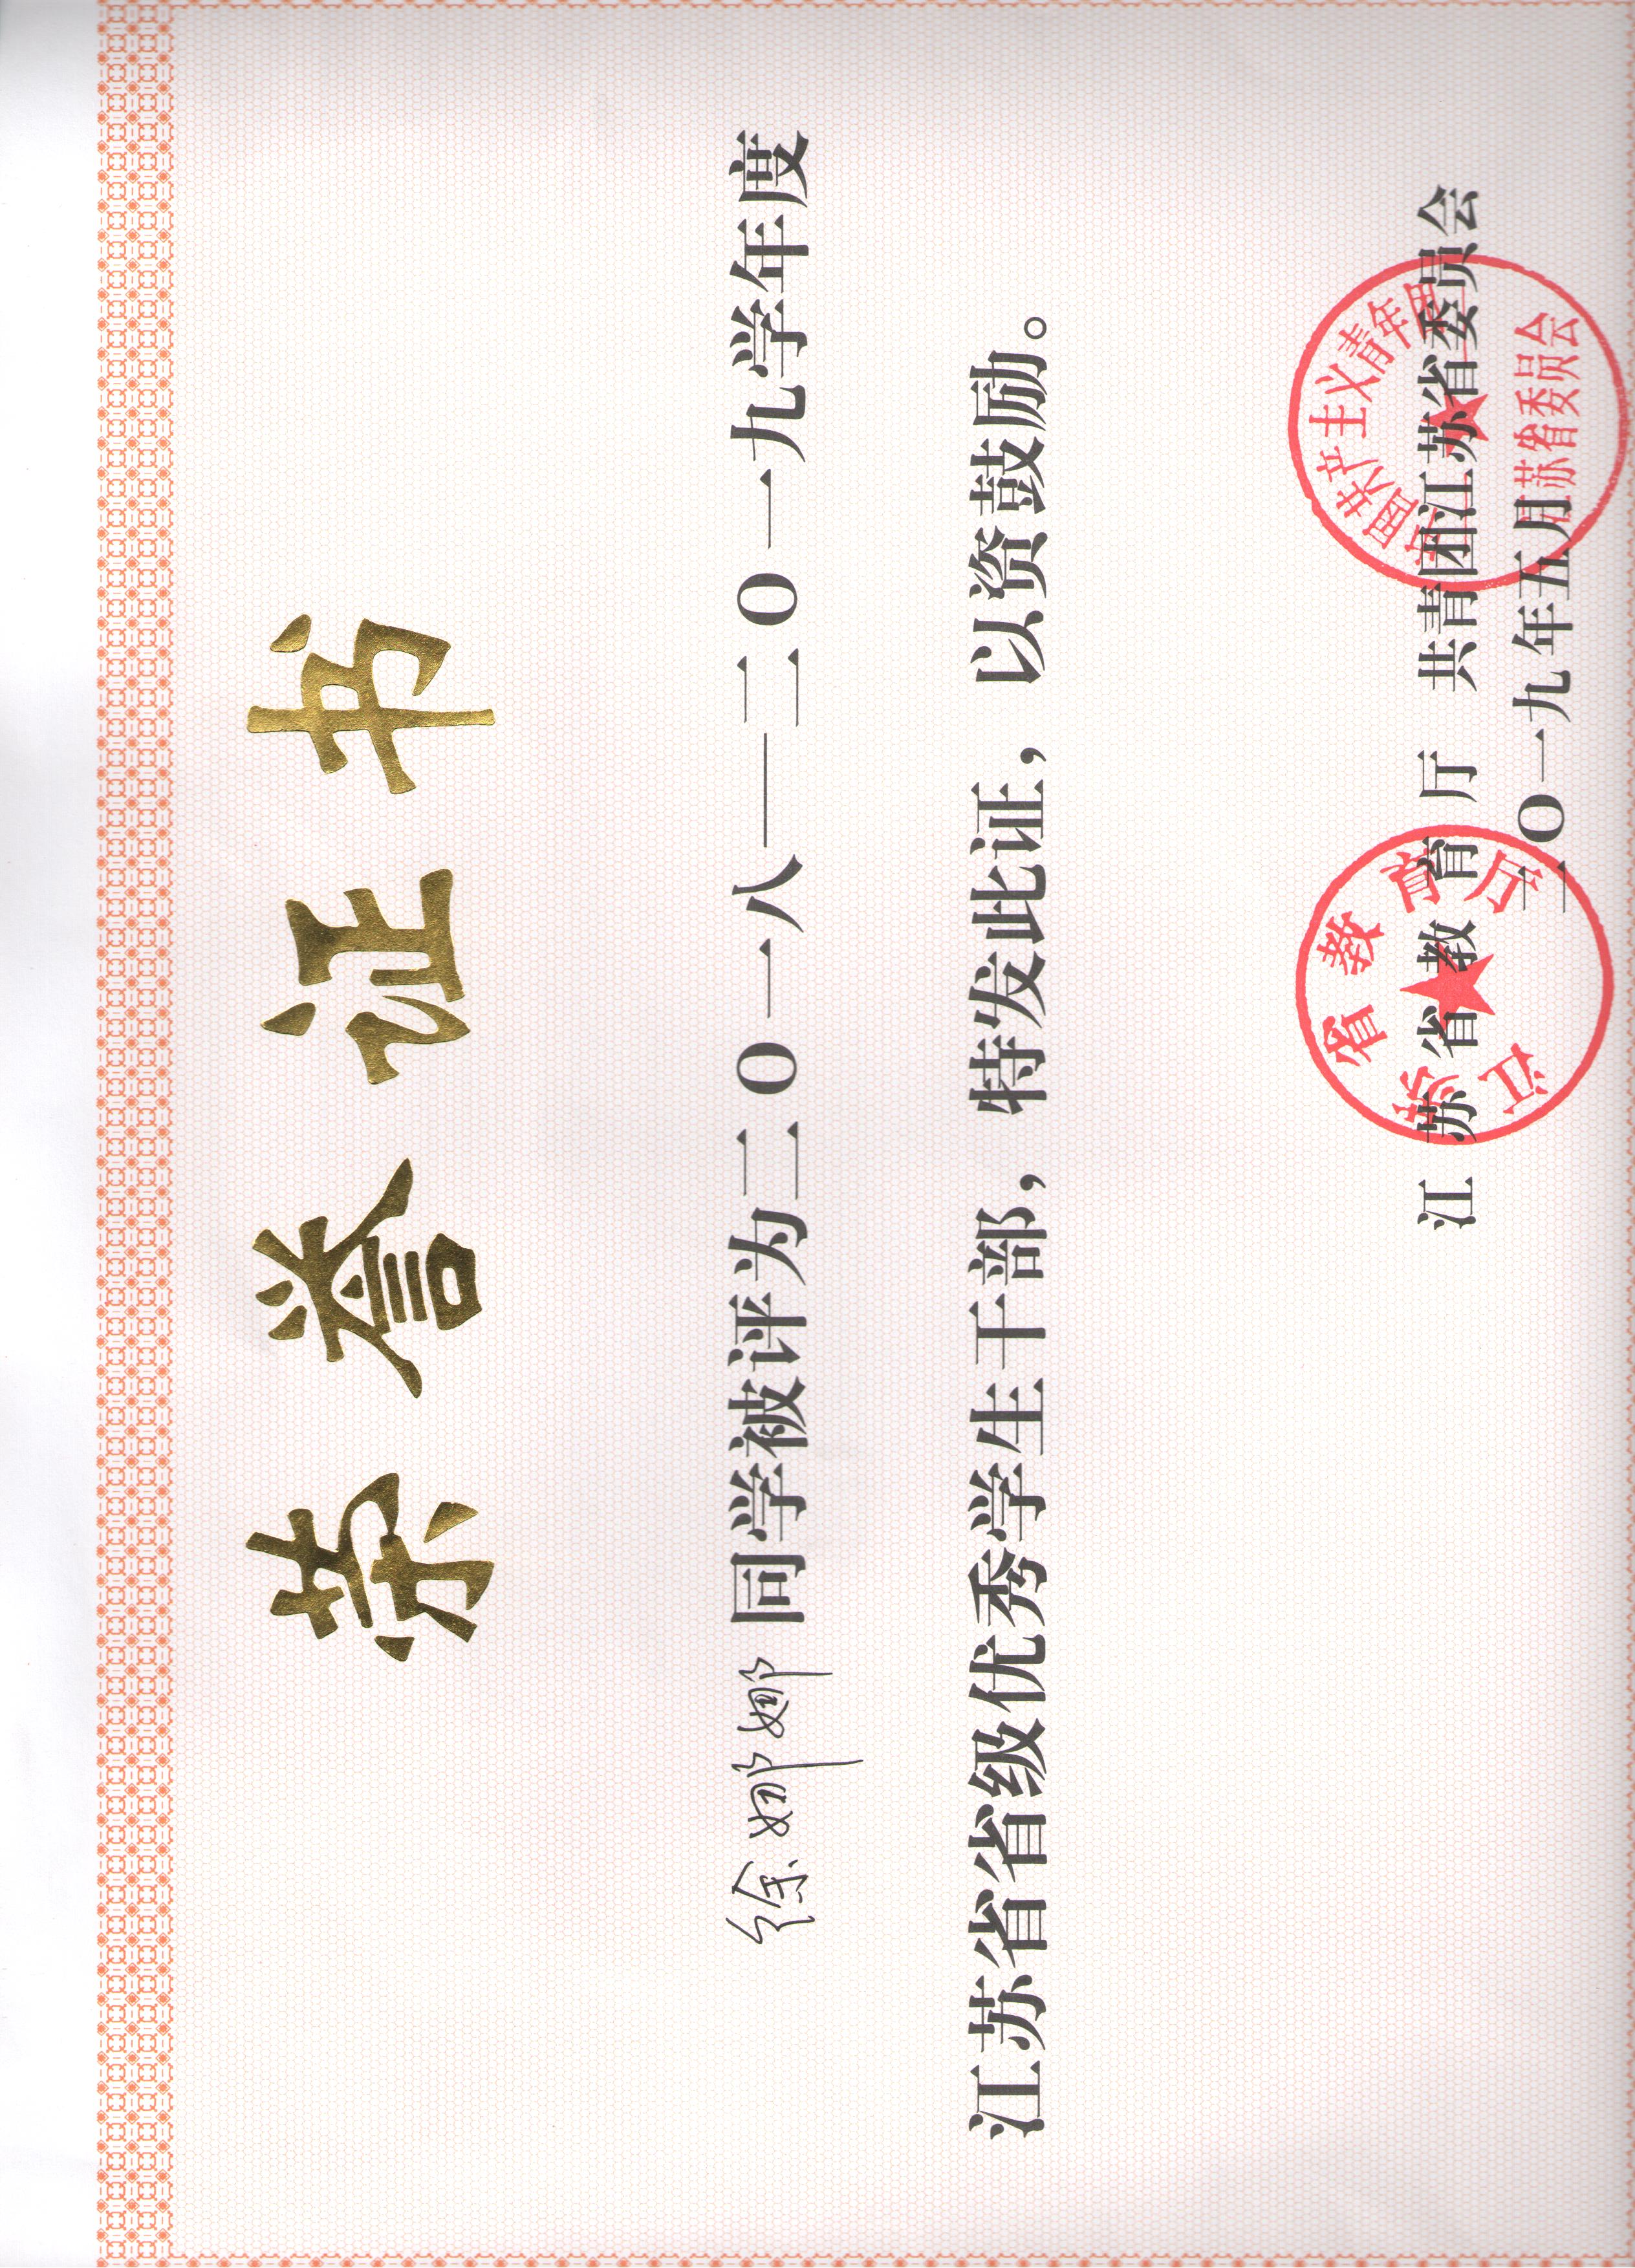 荣誉证书
徐娜娜 同学被评为二〇一八—二〇一九学年度
江苏省省级优秀学生干部，特发此证，以资鼓励。
江苏省教育厅 共青团江苏省委员会
二〇一九年五月
江苏省教育厅
中国共产主义青年团
江苏省委员会